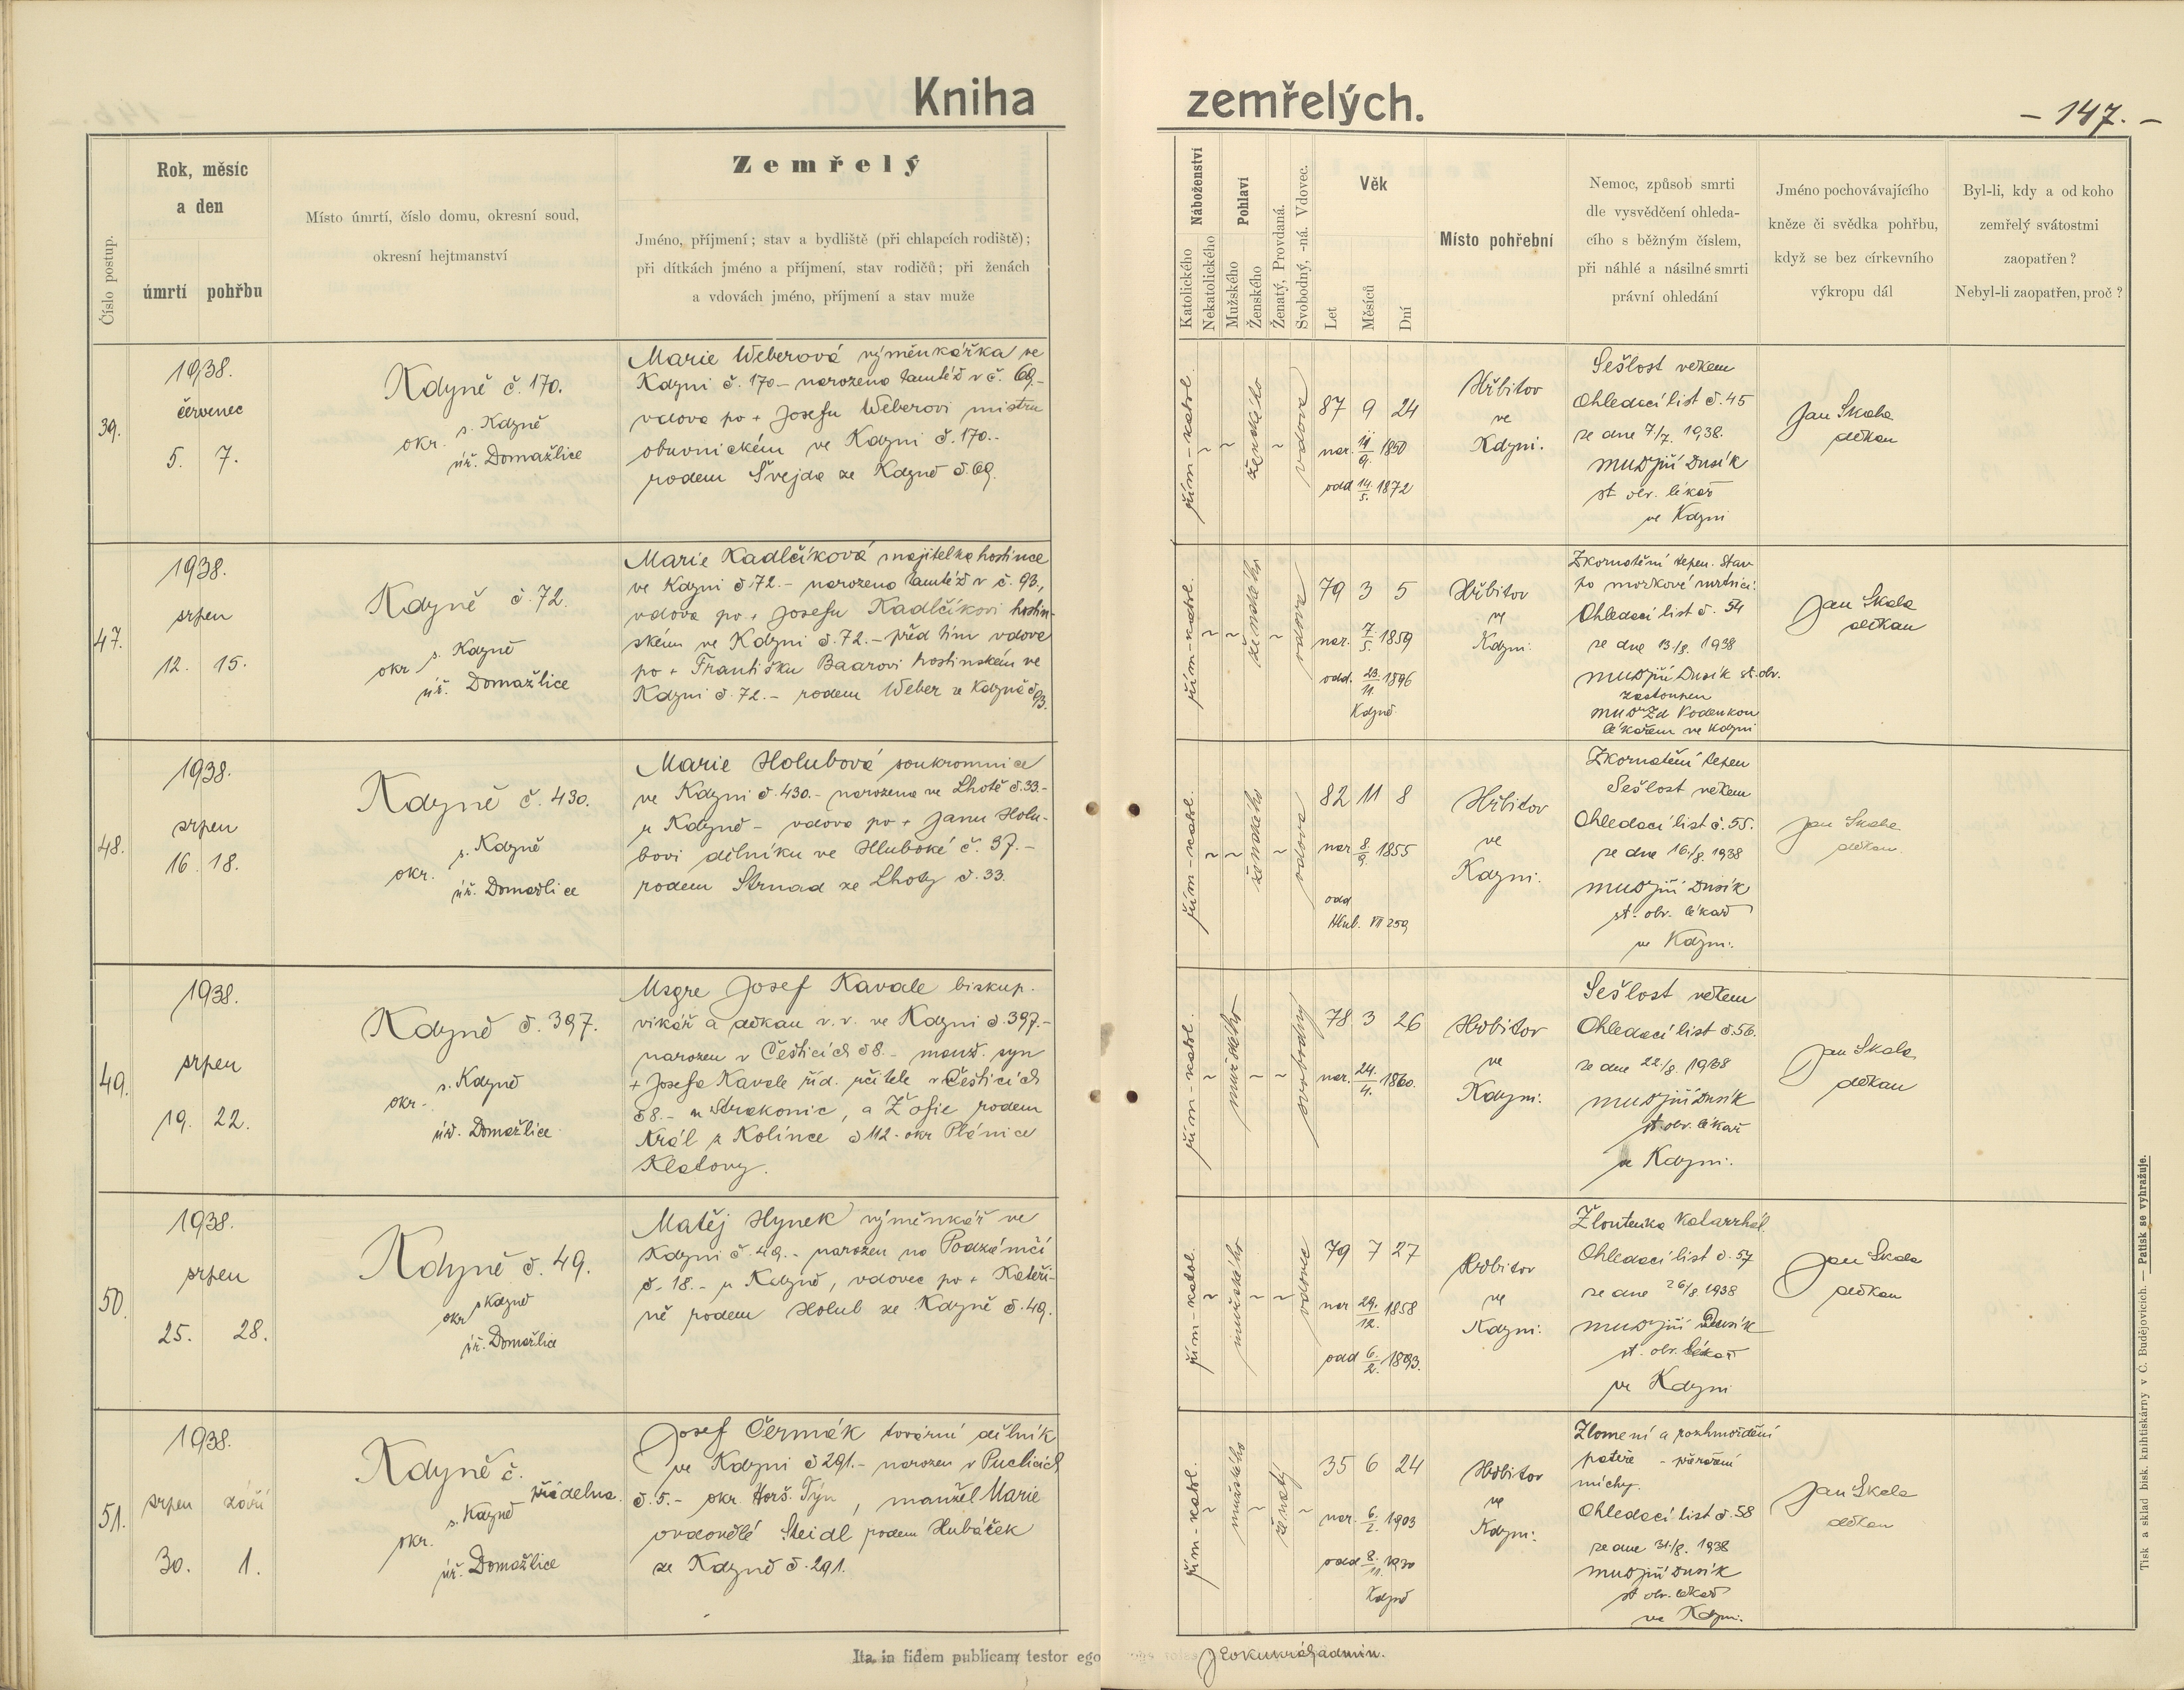 Kniha zemřelých.
– 147. –
Číslo postup.
Rok, měsíc
a den
úmrtí pohřbu
Místo úmrtí, číslo domu, okresní soud,
okresní hejtmanství
Zemřelý
Jméno, příjmení; stav a bydliště (při chlapcích rodiště);
při dítkách jméno a příjmení, stav rodičů; při ženách
a vdovách jméno, příjmení a stav muže
Náboženství
Katolického
Nekatolického
Pohlaví
Mužského
Ženského
Ženatý, Provdaná.
Svobodný, -ná. Vdovec.
Věk
Let
Měsíců
Dní
Místo pohřební
Nemoc, způsob smrti
dle vysvědčení ohleda-
cího s běžným číslem,
při náhlé a násilné smrti
právní ohledání
Jméno pochovávajícího
kněze či svědka pohřbu,
když se bez církevního
výkropu dál
Byl-li, kdy a od koho
zemřelý svátostmi
zaopatřen?
Nebyl-li zaopatřen, proč?
39.
1938.
červenec
5. 7.
Kdyně č. 170.
s. Kdyně
okr.
úř. Domažlice
Marie Weberová výměnkářka ve
Kdyni č. 170 – narozena tamtéž v č. 69.–
vdova po + Josefu Weberovi mistru
obuvnickém ve Kdyni č. 170.–
rodem Švejda ze Kdyně č. 69.
řím-katol.
~
~
ženského
~
vdova
87 9 24
nar. 11/9. 1850
odd 14/5. 1872
Hřbitov
ve
Kdyni.
Sešlost věkem
Ohledací list č. 45
ze dne 7/7. 1938.
MUDr Jiří Dusík
st. obv. lékař
ve Kdyni
Jan Skala
děkan
47.
1938.
srpen
12. 15.
Kdyně č. 72.
s. Kdyně
okr
úř. Domažlice
Marie Kadlčíková majitelka hostince
ve Kdyni č. 72.– narozena tamtéž v č. 93.,
vdova po + Josefu Kadlčíkovi hostin-
ském ve Kdyni č. 72.– před tím vdova
po + Františku Baarovi hostinském ve
Kdyni č. 72.– rodem Weber ze Kdyně č. 93.
řím-katol.
~
~
ženského
~
vdova
79 3 5
nar. 7/5. 1859
odd. 23/11. 1896
Kdyně.
Hřbitov
ve
Kdyni.
Zkornatění tepen. Stav
po mozkové mrtvici.
Ohledací list č. 54
ze dne 13./8. 1938
MUDr Jiří Dusík st. obv.
zastoupen
MUDr Zd Vodenkou
lékařem ve Kdyni
Jan Skala
děkan
48.
1938.
srpen
16. 18.
Kdyně č. 430.
s. Kdyně
okr.
úř. Domažlice
Marie Holubová soukromnice
ve Kdyni č. 430.– narozena ve Lhotě č. 33.–
u Kdyně – vdova po + Janu Holu-
bovi dělníku ve Hluboké č. 37.–
rodem Strnad ze Lhoty č. 33.
řím-katol.
~
~
ženského
~
vdova
82 11 8
nar 8/9. 1855
odd
Hlub. VII 259,
Hřbitov
ve
Kdyni.
Zkornatění tepen
Sešlost věkem
Ohledací list č. 55.
ze dne 16./8. 1938
MUDr Jiří Dusík
st. obv. lékař
ve Kdyni.
Jan Skala
děkan.
49.
1938.
srpen
19. 22.
Kdyně č. 397.
s. Kdyně
okr.
úř. Domažlice
Msgre Josef Kavale biskup.
vikář a děkan v. v. ve Kdyni č. 397.–
narozen v Češticích č 8.– manž. syn
+ Josefa Kavale říd. učitele v Češticích
č 8.– u Strakonic, a Žofie rodem
Král z Kolince č 112. okr Plánice
Klatovy.
řím-katol.
~
mužského
~
~
svobodný
78 3 26
nar. 24./4. 1860.
Hřbitov
ve
Kdyni.
Sešlost věkem
Ohledací list č. 56.
ze dne 22/8. 1938
MUDr Jiří Dusík
st. obv. lékař
ve Kdyni.
Jan Skala
děkan
50.
1938.
srpen
25. 28.
Kdyně č. 49.
s Kdyně
okr
úř. Domažlice
Matěj Hynek výměnkář ve
Kdyni č. 49.– narozen na Podzámčí
č. 18.– u Kdyně, vdovec po + Kateři-
ně rodem Holub ze Kdyně č. 49.
řím-katol.
~
mužského
~
~
vdovec
79 7 27
nar 29./12. 1858
odd 6./2. 1893.
Hřbitov
ve
Kdyni.
Žloutenka katarrhál
Ohledací list č. 57
ze dne 26/8. 1938
MUDr Jiří Dusík
st. obv. lékař
ve Kdyni
Jan Skala
děkan
51.
1938.
srpen září
30. 1.
Kdyně č.
přádelna.
s. Kdyně
okr.
úř. Domažlice
Josef Čermák tovární dělník
ve Kdyni č 291.– narozen v Puclicích
č. 5.– okr. Horš. Týn, manžel Marie
ovdovělé Steidl rodem Hubáček
ze Kdyně č. 291.
řím-katol.
~
mužského
~
ženatý
~
35 6 24
nar. 6./2. 1903
odd 8./11. 1930
Kdyně
Hřbitov
ve
Kdyni.
Zlomení a rozhmoždění
páteře – přerušení
míchy.
Ohledací list č. 58
ze dne 31/8. 1938
MUDr Jiří Dusík
st obv. lékař
ve Kdyni.
Jan Skala
děkan
Ita in fidem publicam testor ego
admin.
Tisk a sklad bisk. knihtiskárny v Č. Budějovicích. — Patisk se vyhražuje.